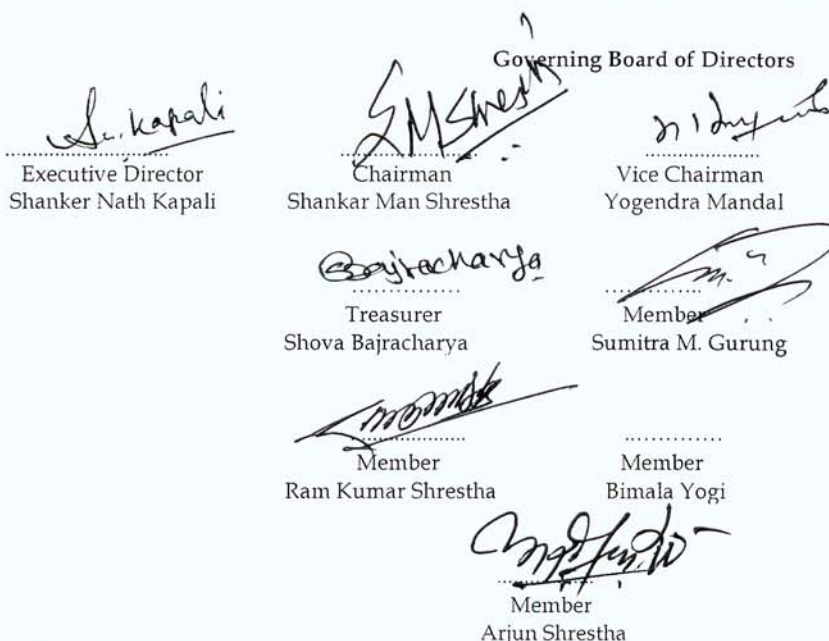 Governing Board of Directors
Su. Kapali
SMShresth
Executive Director
Shanker Nath Kapali
Chairman
Shankar Man Shrestha
Vice Chairman
Yogendra Mandal
SBajracharya
Treasurer
Shova Bajracharya
Member
Sumitra M. Gurung
Member
Ram Kumar Shrestha
Member
Bimala Yogi
Member
Arjun Shrestha